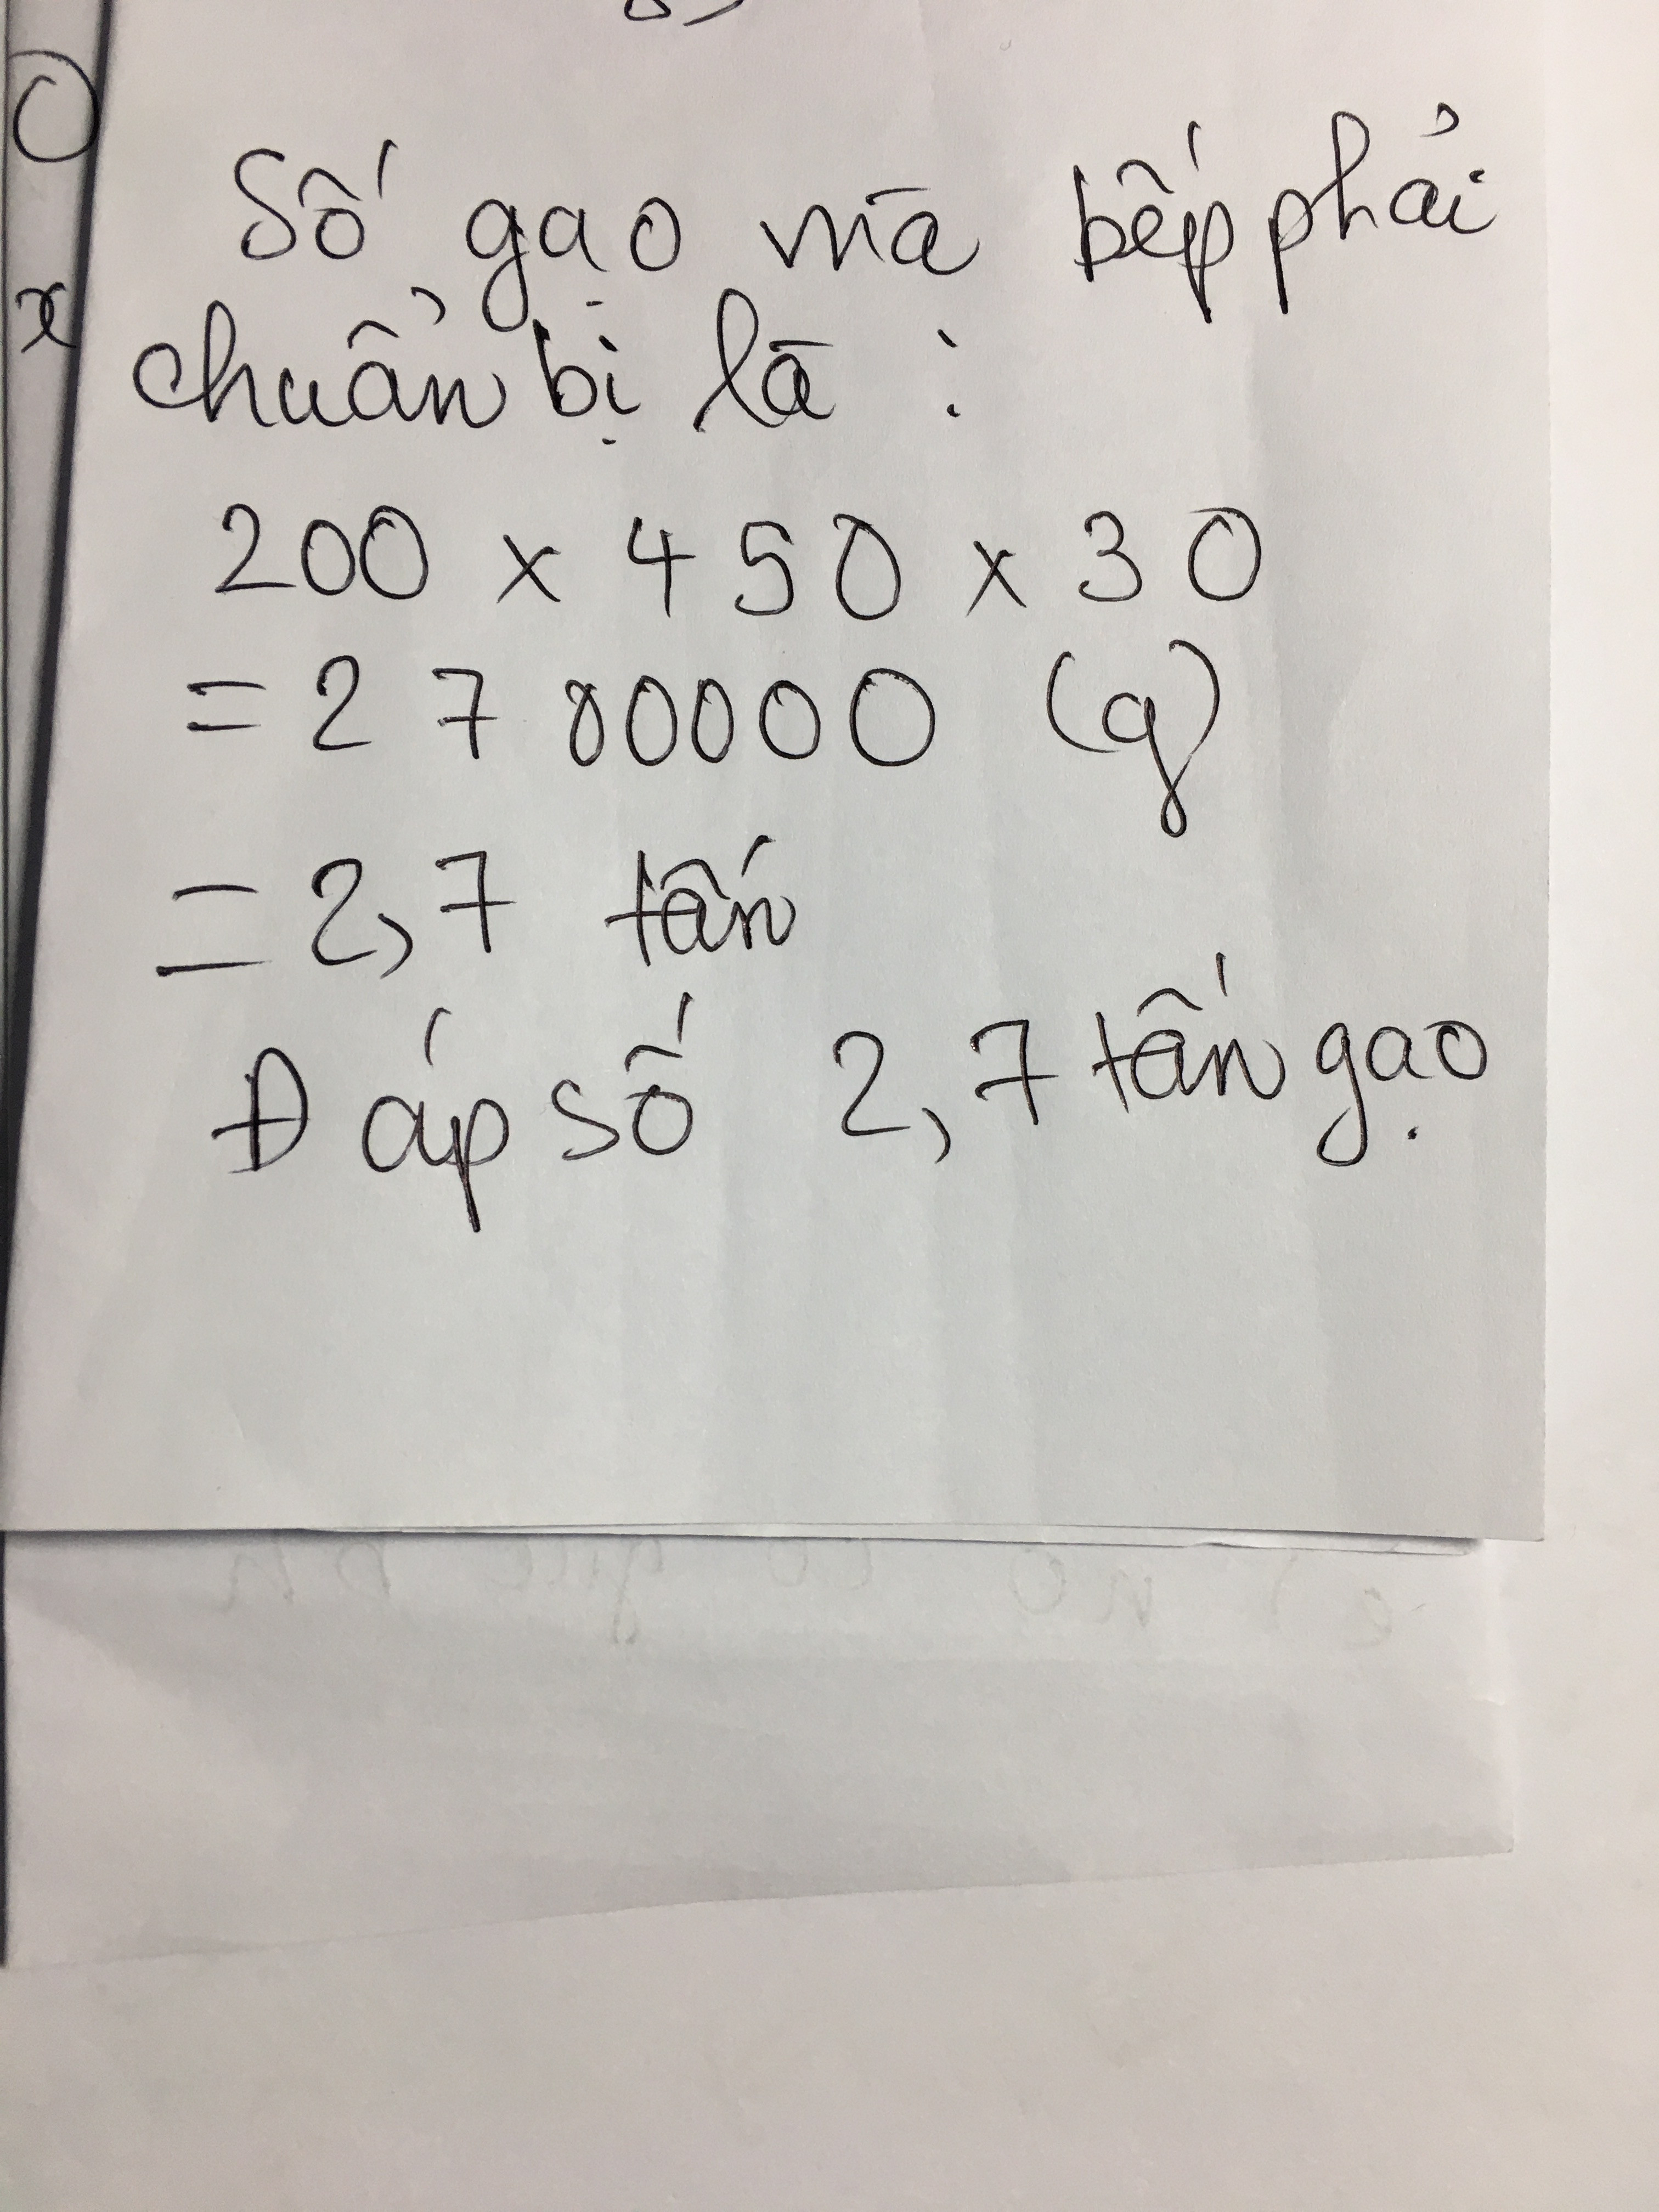 Số gạo mà bếp phải
chuẩn bị là :
200 x 450 x 30
= 2700000 (g)
= 2,7 tấn
Đáp số 2,7 tấn gạo